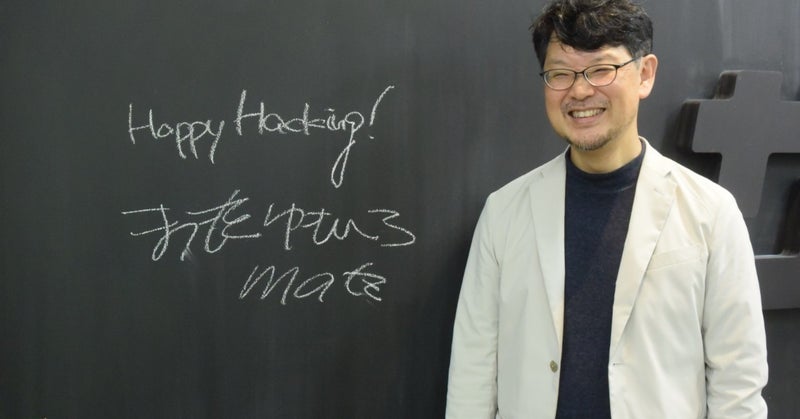 Happy Hacking!
まつもとゆきひろ
matz